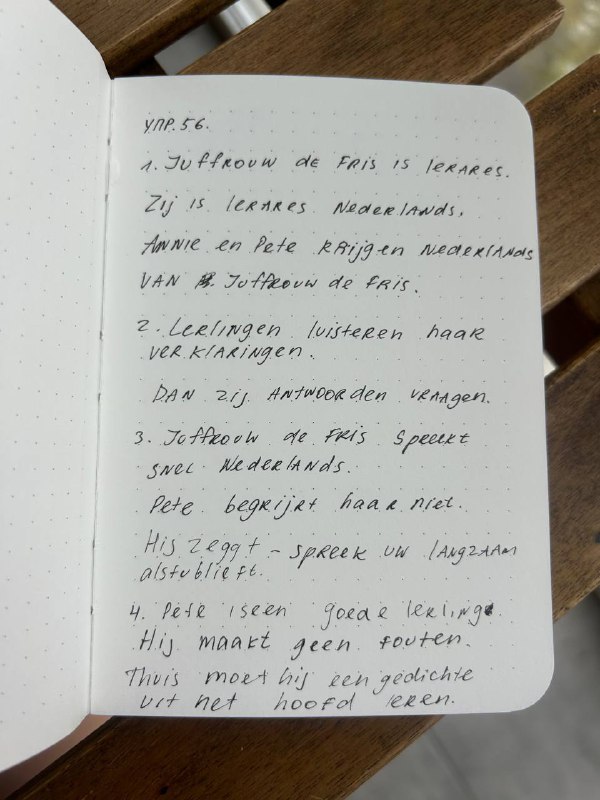 упр. 56.
1. Juffrouw de Fris is lerares.
Zij is lerares Nederlands.
Annie en Pete krijgen Nederlands
van Juffrouw de Fris.
2. Lerlingen luisteren haar
verklaringen.
Dan zij antwoorden vraagen.
3. Joffrouw de Fris spreekt
snel Nederlands.
Pete begrijpt haar niet.
His zeggt – spreek uw langzaam
alstublieft.
4. Pete is een goede lerling.
Hij maakt geen fouten.
Thuis moet hij een gedichte
uit het hoofd leren.